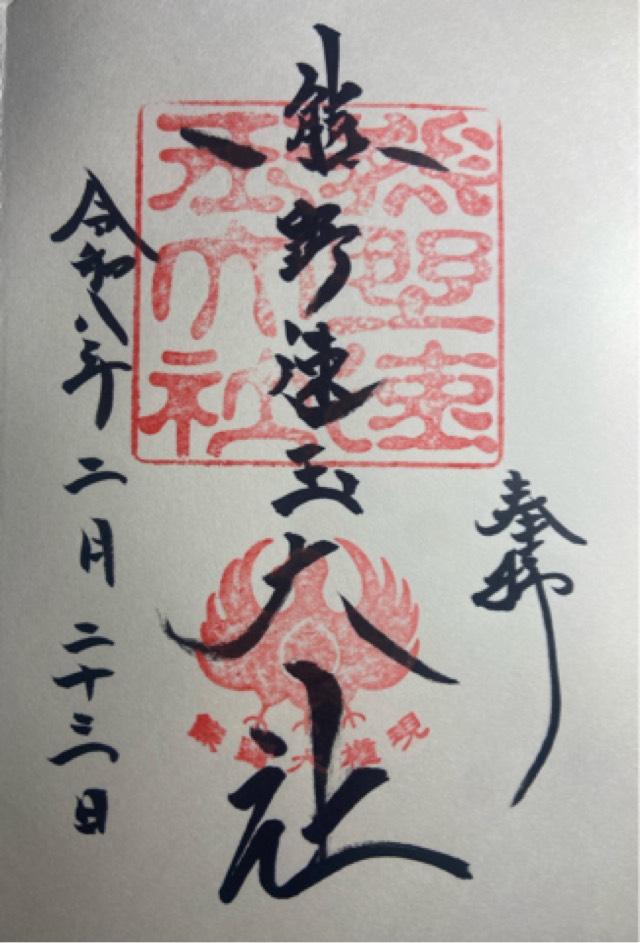 奉拝
熊野速玉大社
熊野速玉大社
令和八年二月二十三日